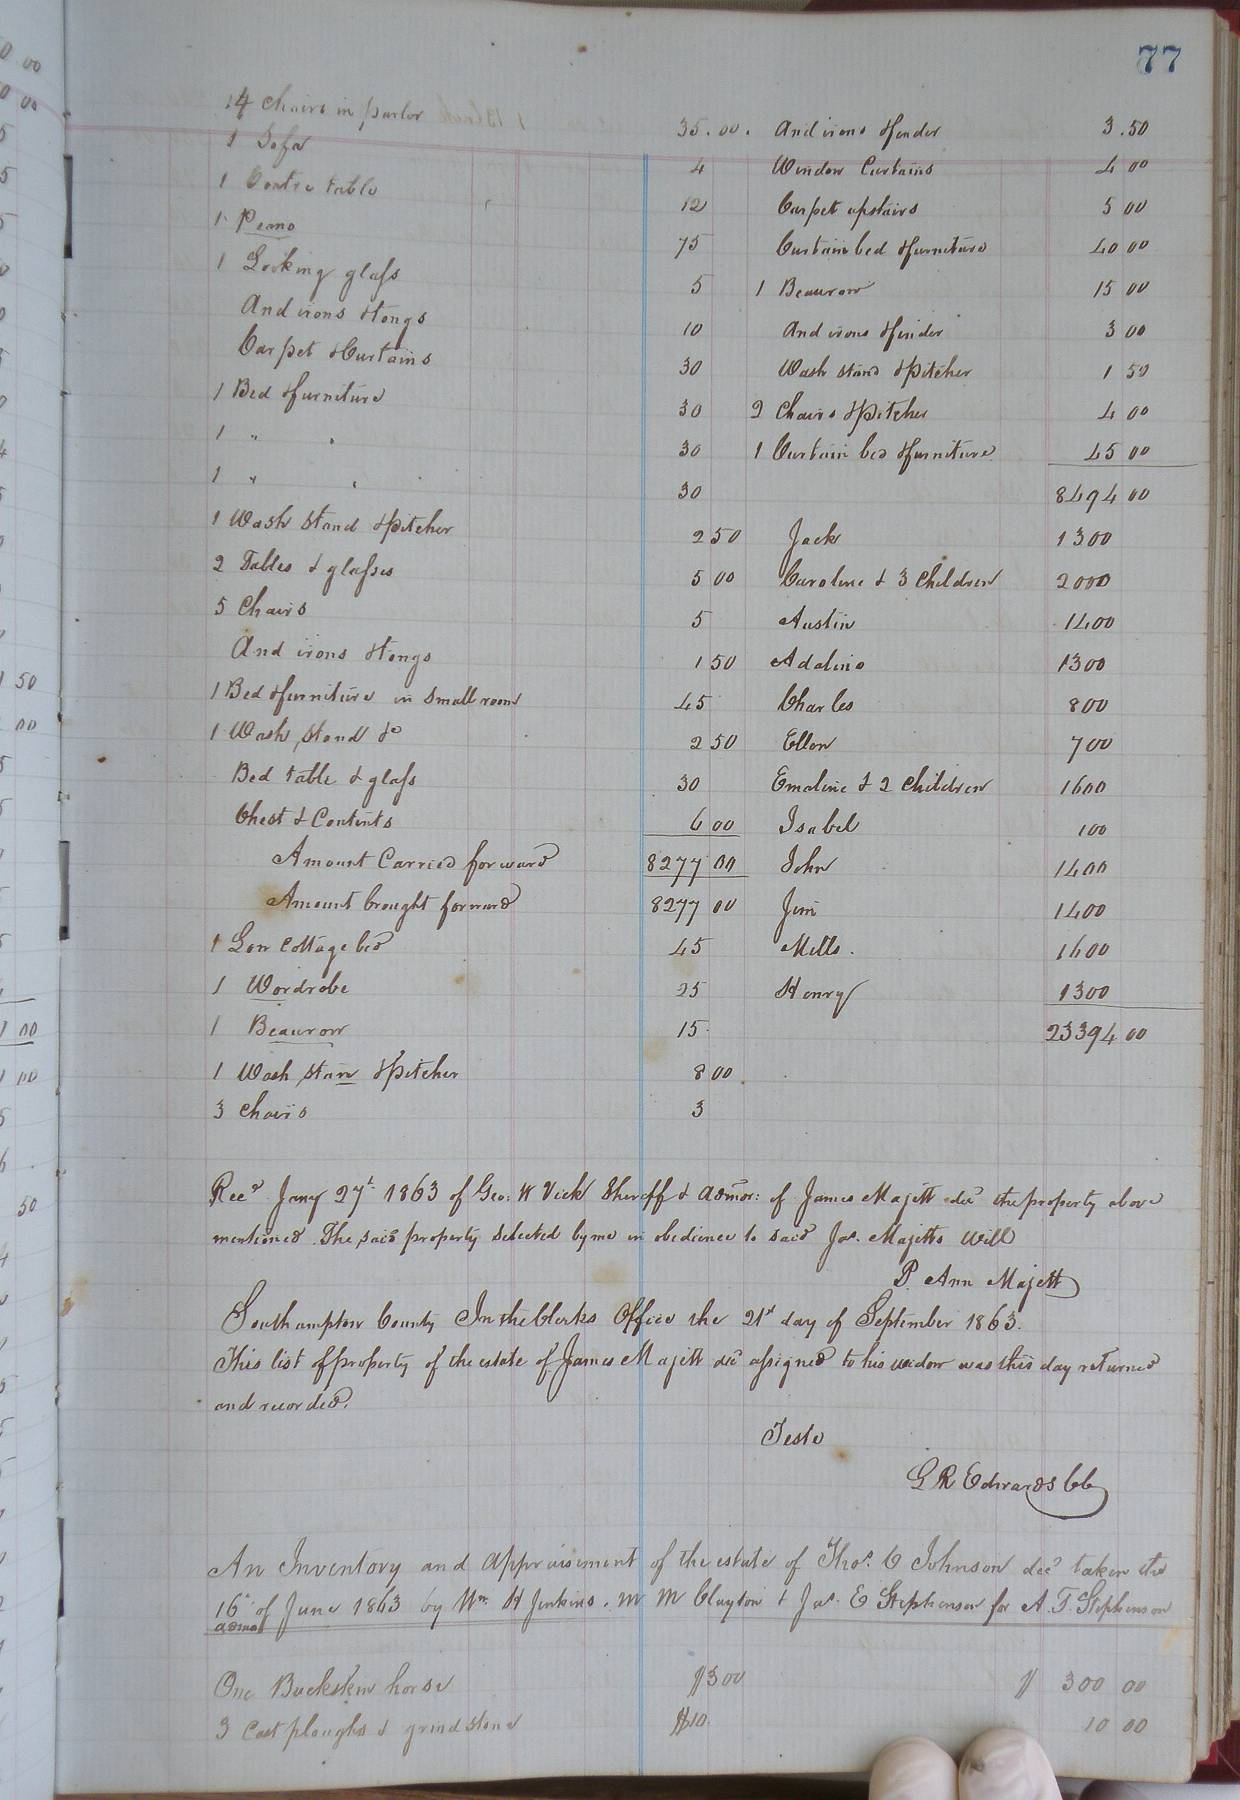 77
14 Chairs in parlor 35.00.
1 Sofa 4
1 Centre table 12
1 Peano 75
1 Looking glass 5
And irons & tongs 10
Carpet & Curtains 30
1 Bed & furniture 30
1 " " 30
1 " " 30
1 Wash Stand & pitcher 2 50
2 Tables & glasses 5 00
5 Chairs 5
And irons & tongs 1 50
1 Bed & furniture in small room 45
1 Wash Stand &c 2 50
Bed table & glass 30
Chest & Contents 6 00
Amount Carried forward 8277 00
Amount brought forward 8277 00
1 Low Cottage bed 45
1 Wordrobe 25
1 Beaurow 15
1 Wash Stan & Pitcher 8 00
3 Chairs 3
And irons & fender 3.50
Window Curtains 4 00
Carpet upstairs 5 00
Curtain bed & furniture 40 00
1 Beaurow 15 00
And irons & finder 3 00
Wash stand & Pitcher 1 50
2 Chairs & pitcher 4 00
1 Curtain bed & furniture 45 00
8494 00
Jack 1300
Caroline & 3 Children 2000
Austin 1400
Adaline 1300
Charles 800
Ellen 700
Emaline & 2 Children 1600
Isabel 100
John 1400
Jim 1400
Mills. 1600
Henry 1300
23394 00
Recd Jany 27t 1863 of Geo: W Vick Sheriff & admor: of James Majett decd the property above
mentioned. The said property selected by me in obedience to said Jas. Majetts Will
P. Ann Majett
Southampton County In the Clerks Office the 21st day of September 1863.
This list of property of the estate of James Majett decd assigned to his widow was this day returned
and recorded.
Teste
G R Edwards CC
An Inventory and Appraisement of the estate of Thos. C Johnson decd taken the
16th of June 1863 by Wm H Jenkins. M M Clayton & Jas. E Stephenson for A. T. Stephenson
admor
One Buckskin horse $300 $ 300 00
3 Cast ploughs & grind stone $10 10 00